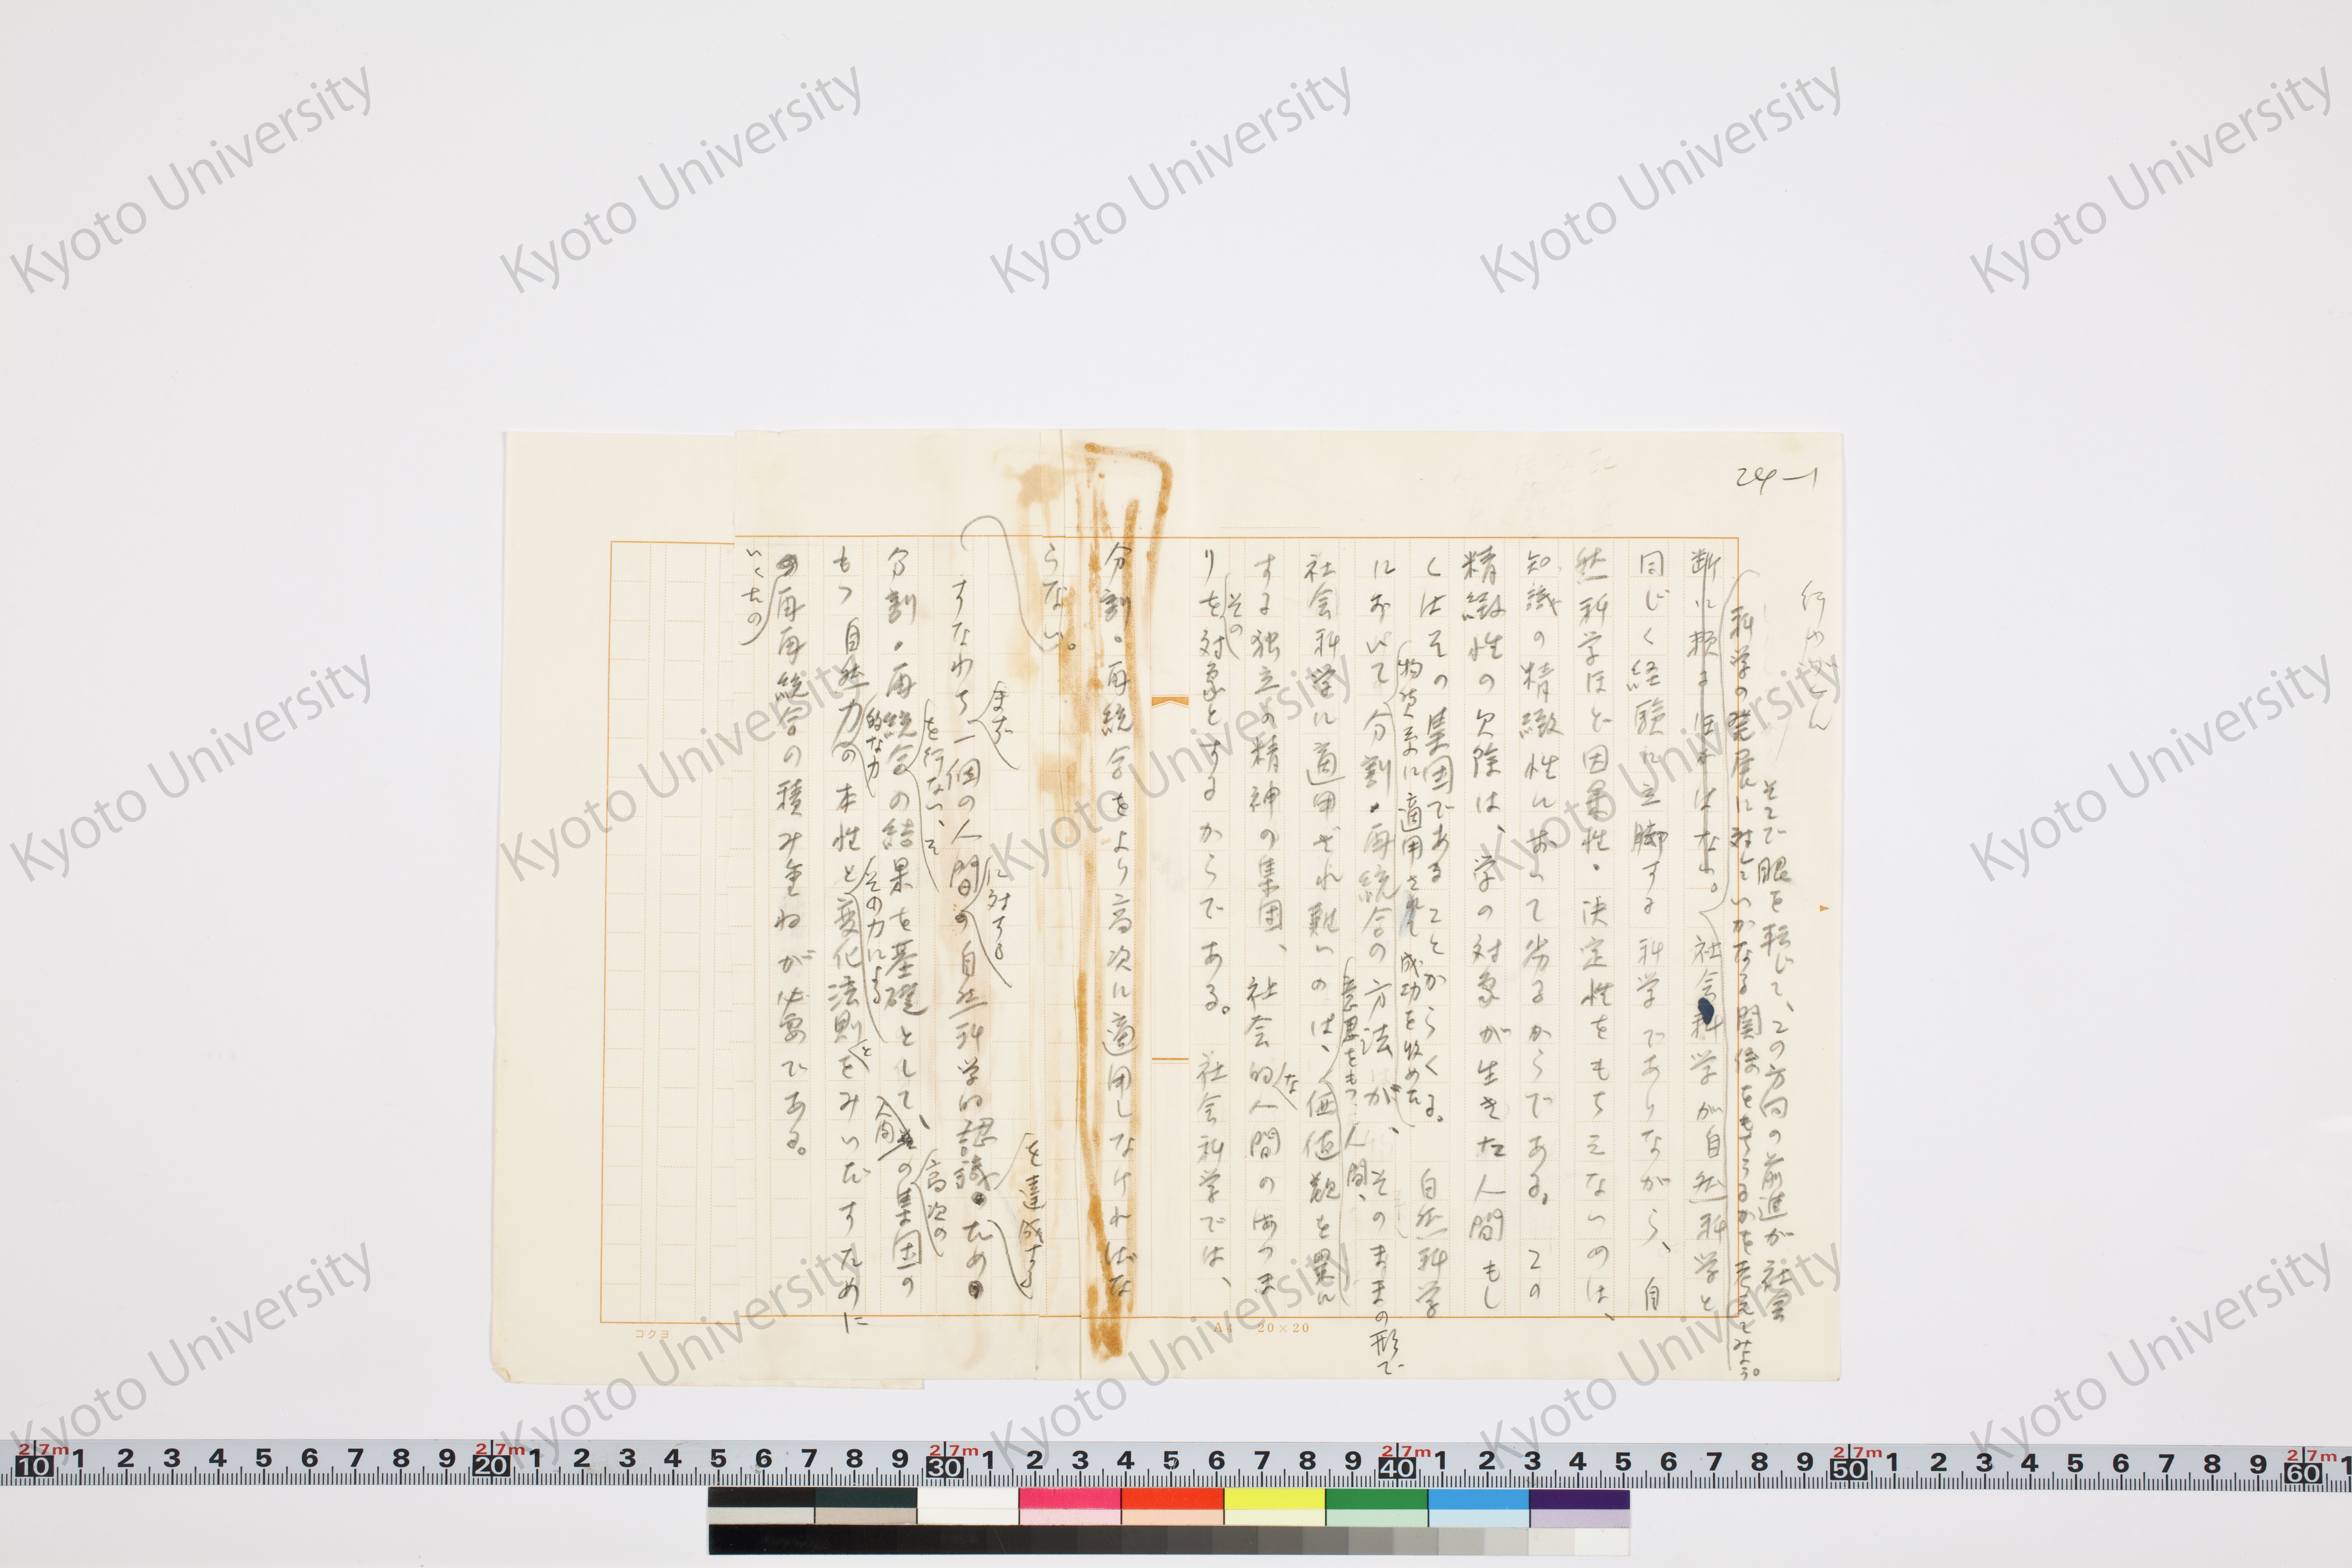 24-1
行かえん
そこで眼を転じて、この方向の前進が社会
科学の発展に対していかなる関係をもちうるかを考えてみよう。
断に頼るほかはない。社会科学が自然科学と
同じく経験に立脚する科学でありながら、自
然科学ほど因果性・決定性をもちえないのは、
知識の精緻性において劣るからである。この
精緻性の欠除は、学の対象が生きた人間もし
くはその集団であることからくる。自然科学
物質系に適用されて成功を収めた
において分割・再統合の方法が、そのままの形で
意思をもつ人間、
社会科学に適用され難いのは、価値観を異に
する独立の精神の集団、社会的な人間のあつま
その
りを対象とするからである。社会科学では、
分割・再統合をより高次に適用しなければな
らない。
を達成する
まず
に対する
すなわち一個の人間の自然科学的認識ため
を行ない、そ
高次の
分割・再統合の結果を基礎として、人間の集団の
的な力
その力による
と
もつ自然力の本性と変化法則をみいだすために
の再再統合の積み重ねが必要である。
いくたの
コクヨ
A4 20×20
Kyoto University